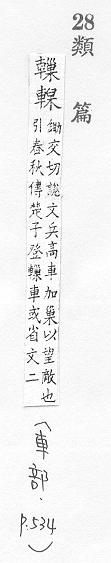 28
類
篇
轈䡞
鋤交切說文兵高車加巢以望敵也
引春秋傳楚子登轈車或省文二
(車部.
P.534)